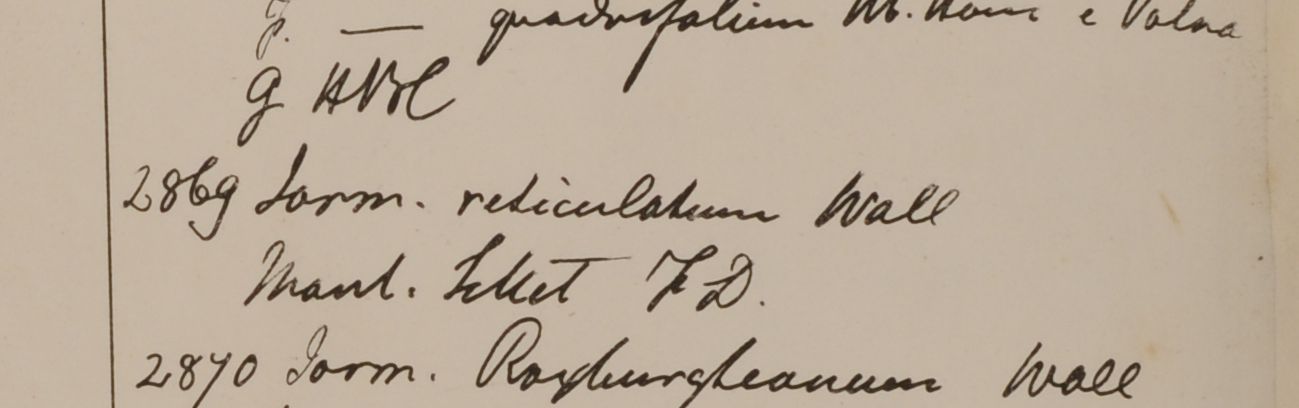 F. — quadrifolium M. Hook e Valna
G HBC
2869 Jasm. reticulatum Wall
Maul. Sillet F D.
2870 Jasm. Roxburgheanum Wall